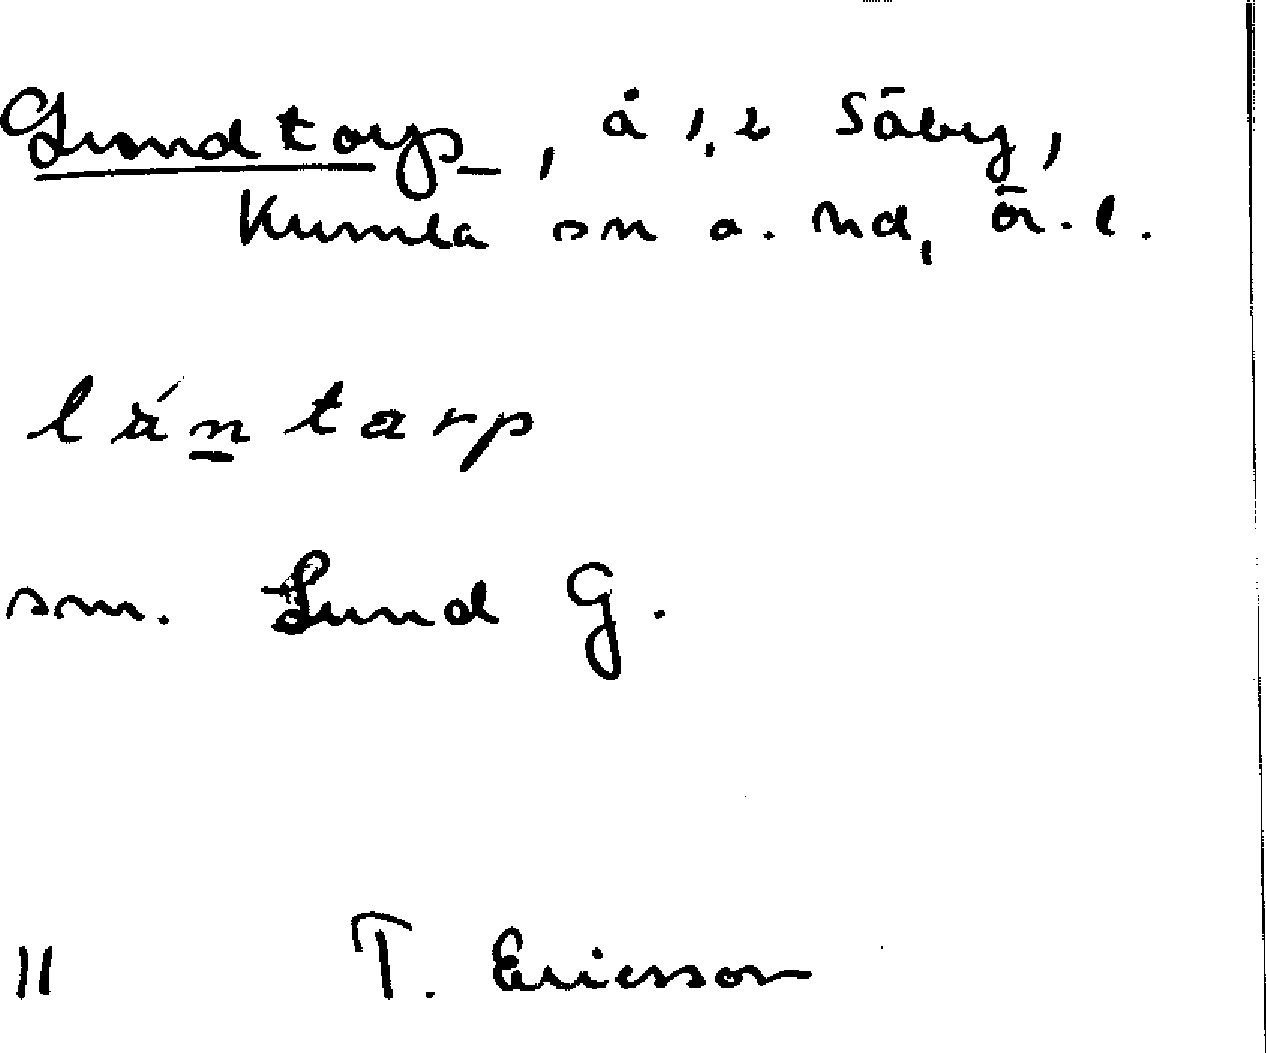 Lundtorp, å 1,2 Säby,
Kumla sn o. hd, Ör. l.
lántarp
sm. Lund G.
11 T. Ericsson